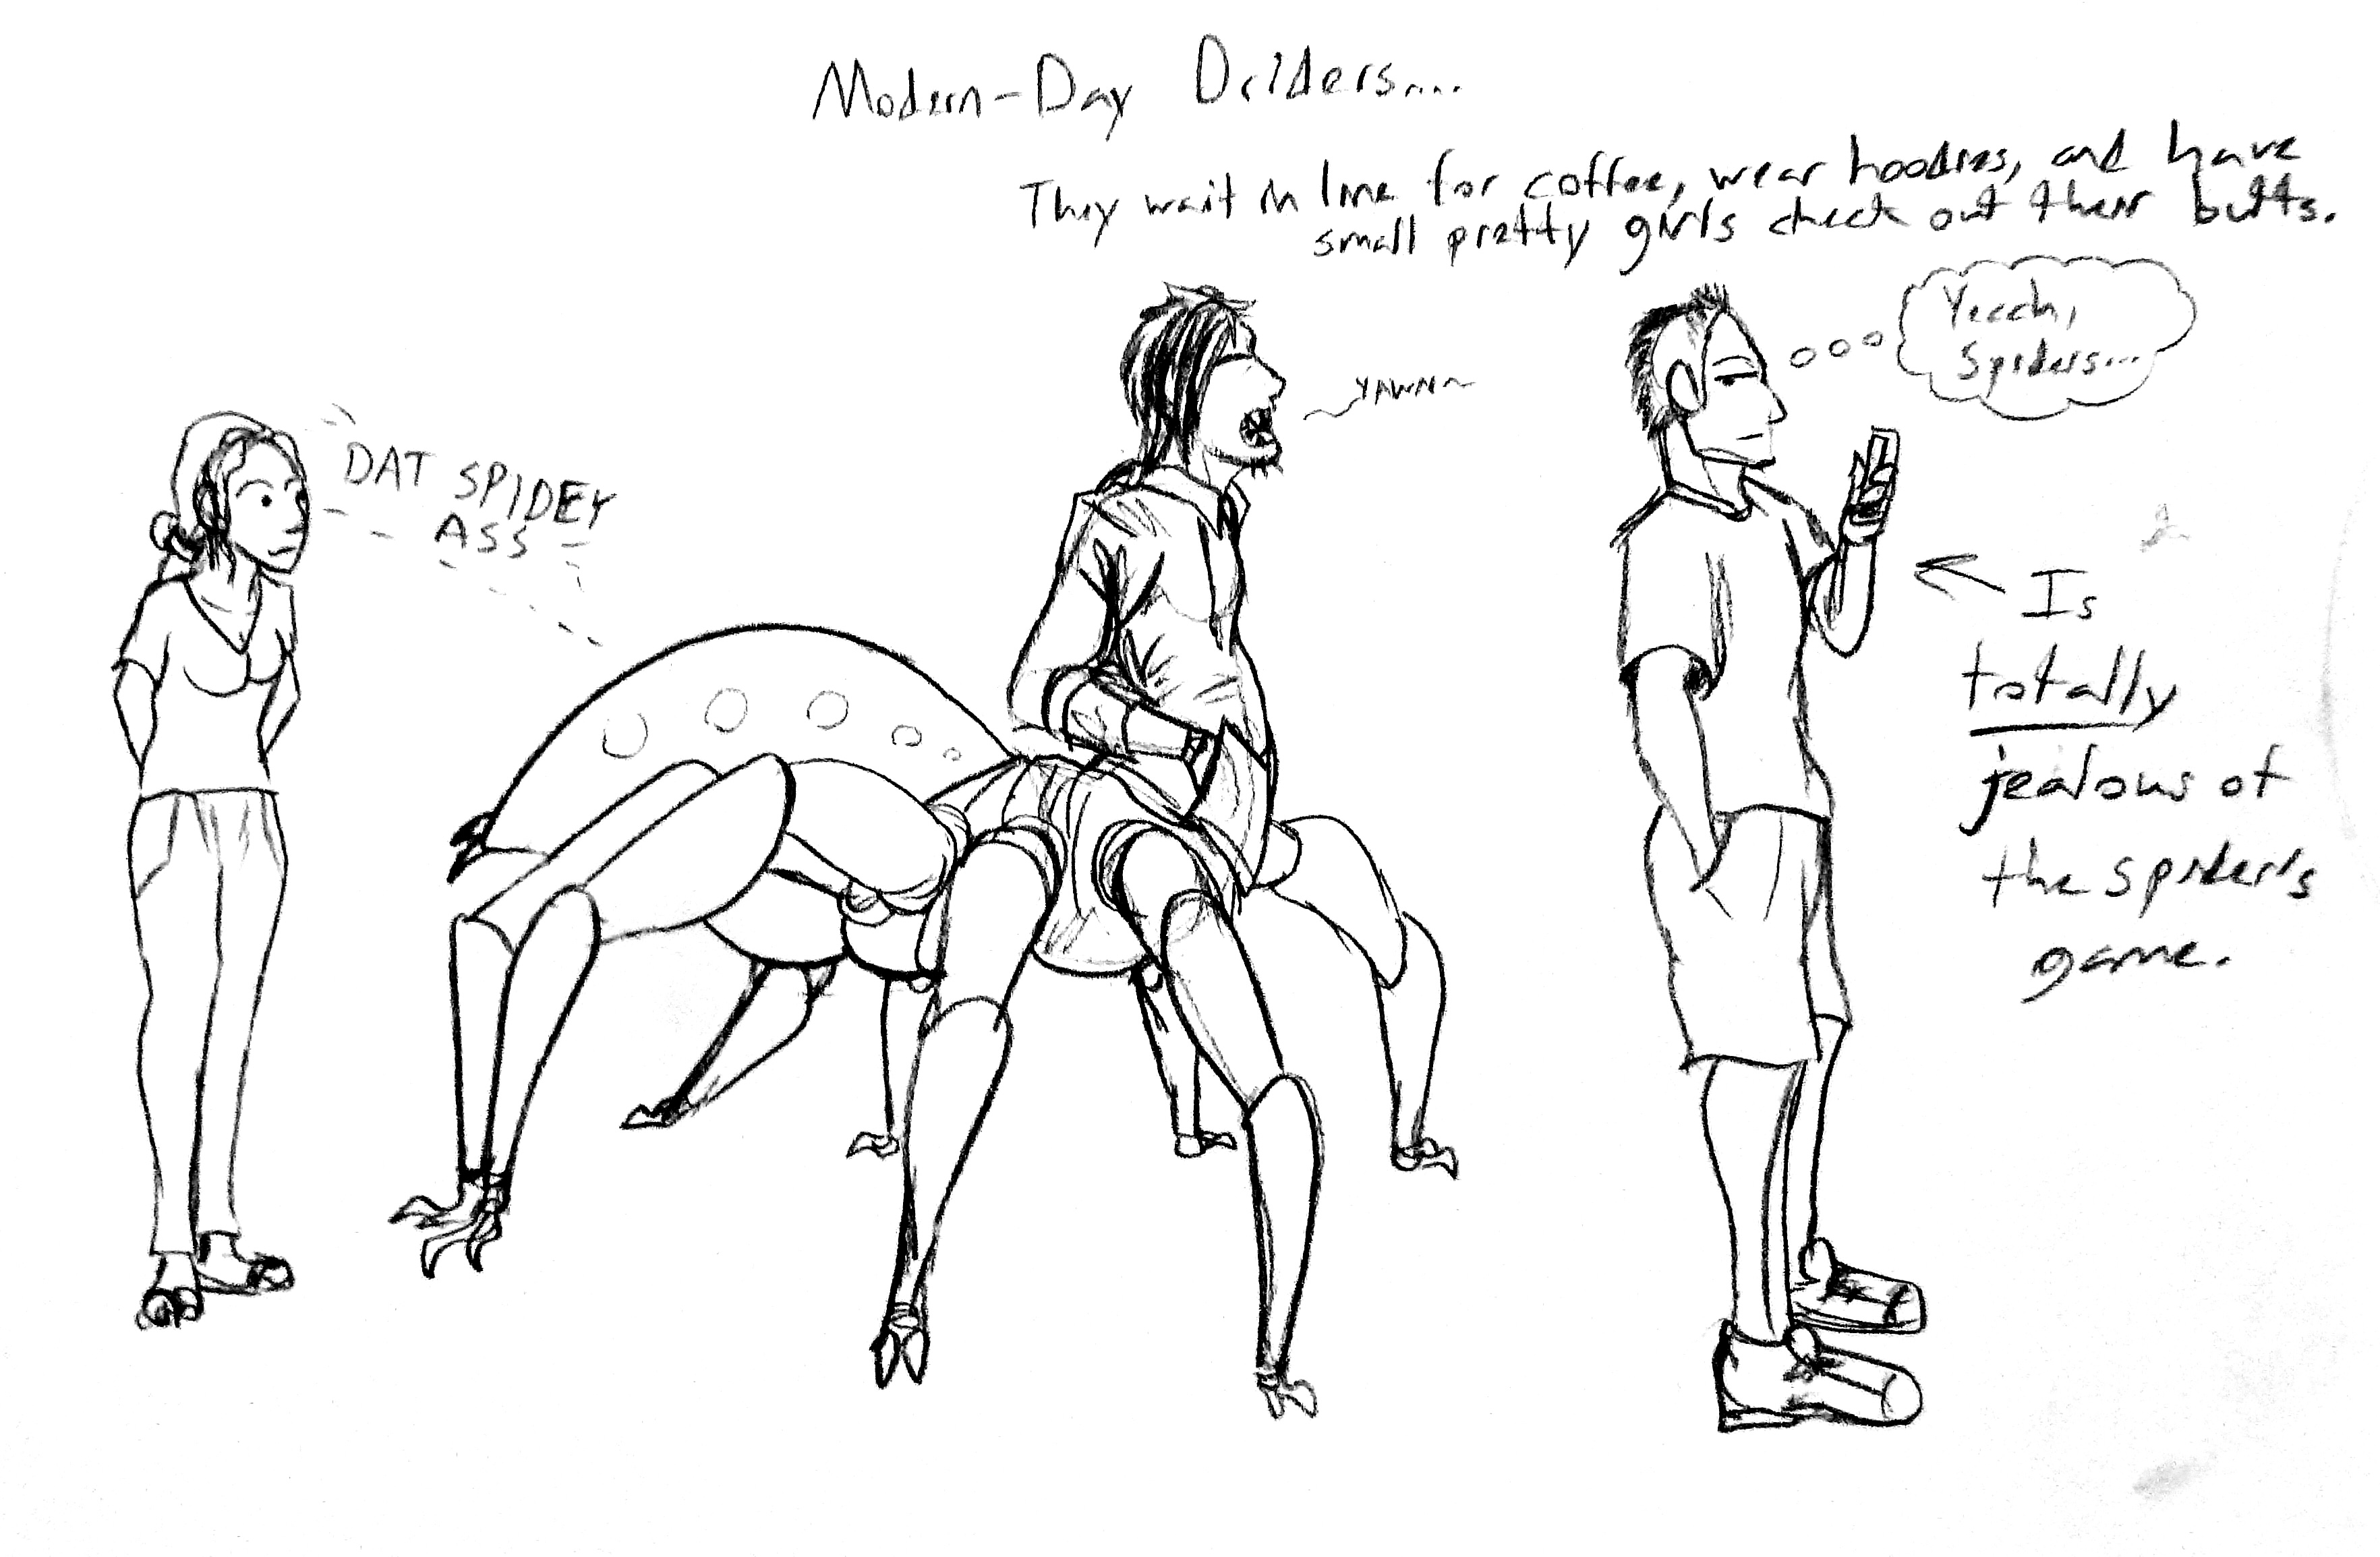 Modern-Day Driders...
They wait in line for coffee, wear hoodies, and have
small pretty girls check out their butts.
Yeccch,
Spiders...
~YAWN~
DAT SPIDEY
ASS
Is
totally
jealous of
the spider's
game.